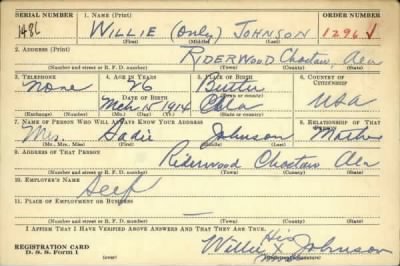 SERIAL NUMBER 1. NAME (Print) ORDER NUMBER
1486 WILLIE (only) JOHNSON 1296
(First) (Middle) (Last)
2. ADDRESS (Print)
RIDERWOOD Choctaw, Ala
(Number and street or R. F. D. number) (Town) (County) (State)
3. TELEPHONE 4. AGE IN YEARS 5. PLACE OF BIRTH 6. COUNTRY OF CITIZENSHIP
None 26 Butler
DATE OF BIRTH (Town or county)
Mch 15 1914 Ala USA
(Exchange) (Number) (Mo.) (Day) (Yr.) (State or country)
7. NAME OF PERSON WHO WILL ALWAYS KNOW YOUR ADDRESS 8. RELATIONSHIP OF THAT PERSON
Mrs. Sadie Johnson Mother
(Mr., Mrs., Miss) (First) (Middle) (Last)
9. ADDRESS OF THAT PERSON
Riderwood Choctaw Ala
(Number and street or R. F. D. number) (Town) (County) (State)
10. EMPLOYER'S NAME
Self
11. PLACE OF EMPLOYMENT OR BUSINESS
—
(Number and street or R. F. D. number) (Town) (County) (State)
I AFFIRM THAT I HAVE VERIFIED ABOVE ANSWERS AND THAT THEY ARE TRUE.
His
REGISTRATION CARD Willie X Johnson
D. S. S. Form 1 (over) (Registrant's signature)